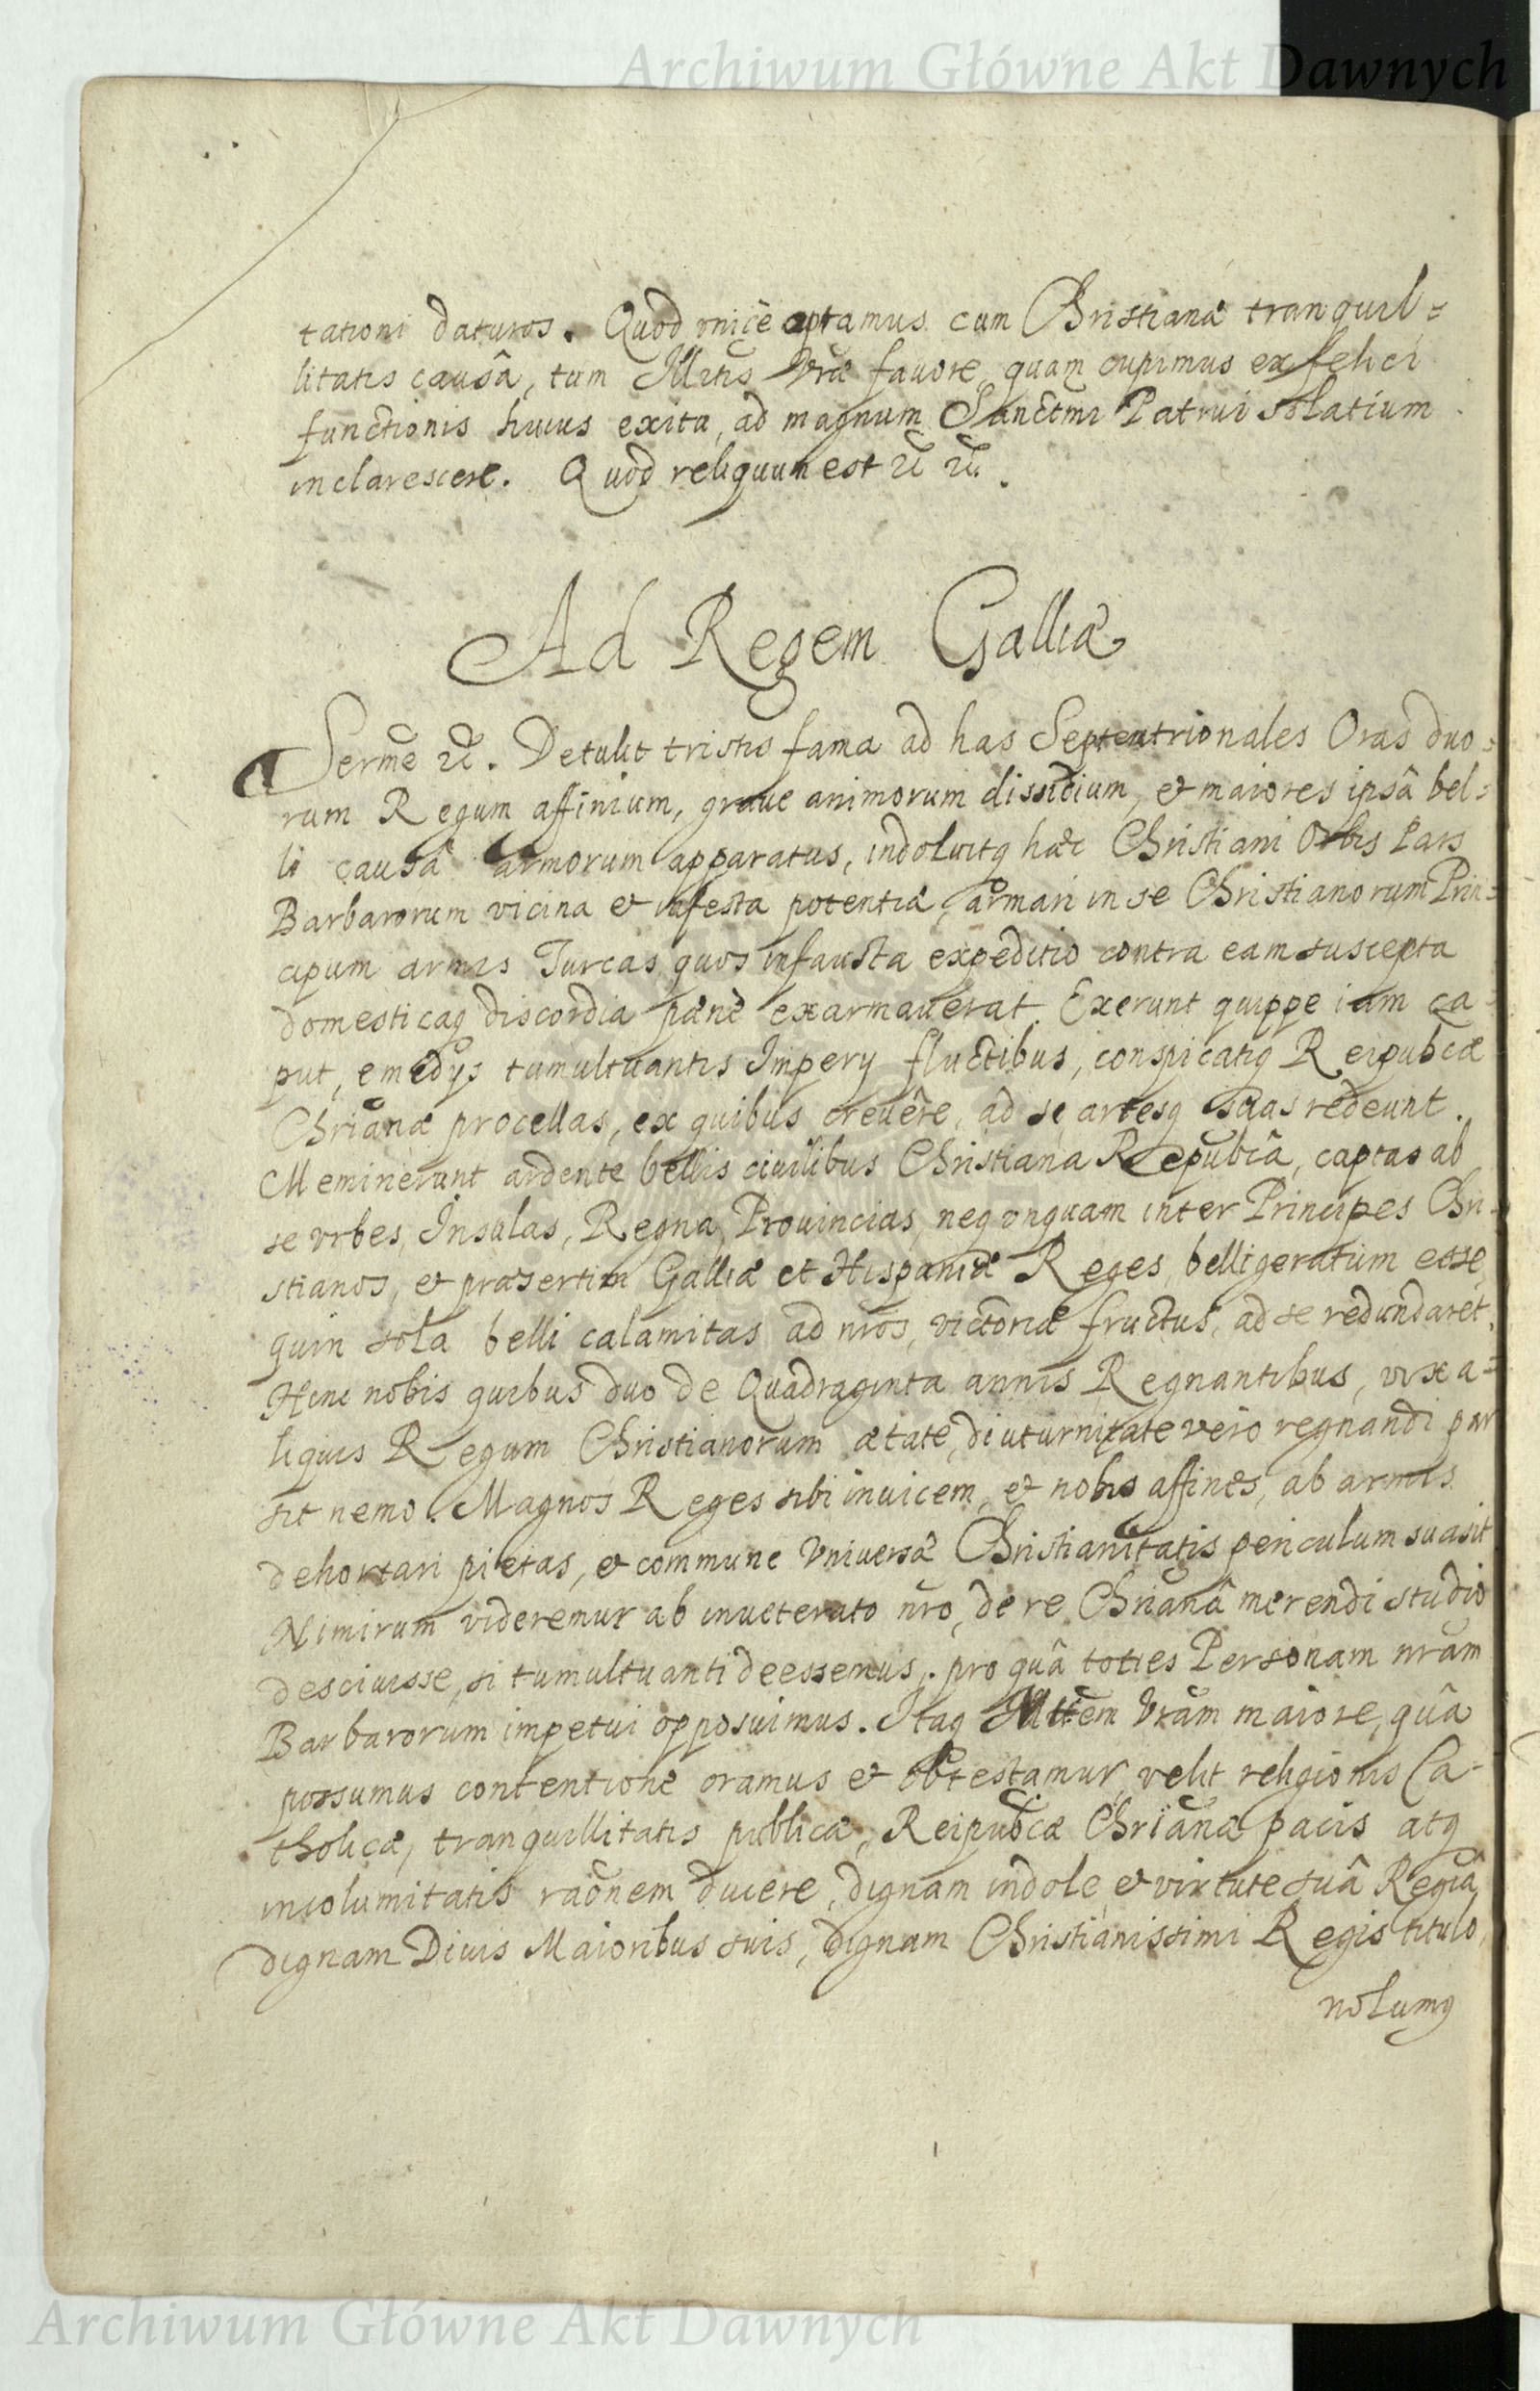 Archiwum Główne Akt Dawnych
tationi daturos. Quod unicè optamus cum Christianæ tranquil=
litatis causâ, tum Illmis Vræ fauore, quam cupimus ex felici
functionis huius exitu, ad magnum Sanctmi Patrui solatium
inclarescere. Quod reliquum est
Ad Regem Galliæ
Serme. Detulit tristis fama ad has Septentrionales Oras duo=
rum Regum affinium, graue animorum dissidium, et maiores ipsâ bel=
li causâ armorum apparatus, indoluitq hæc Christiani Orbis Pars
Barbarorum vicina et infesta potentiæ, armari in se Christianorum Prin=
cipum armis Turcas, quos infausta expeditio contra eam suscepta
domesticaq discordia pænè exarmauerat. Exerunt quippe iam ca=
put, e medys tumultuantis Impery fluctibus, conspicatiq Reipubcæ
Chrianæ procellas, ex quibus creuêre, ad se artesq suas redeunt.
Meminerunt ardente bellis ciuilibus Christiana Repubcâ, captas ab
se vrbes, Insulas, Regna, Prouincias, neq vnquam inter Principes Chri=
stianos, et præsertim Galliæ et Hispaniæ Reges, belligeratum esse,
quin sola belli calamitas ad nros, victoriæ fructus, ad se redundaret.
Hinc nobis quibus duo de Quadraginta annis Regnantibus, vix a=
liquis Regum Christianorum ætate, diuturnitate vero regnandi par
sit nemo. Magnos Reges sibi inuicem, et nobis affines, ab armis
dehortari pietas, et commune Vniuersæ Christianitatis periculum suasit
Nimirum videremur ab inueterato nro, de re Chrianâ merendi studio
desciuisse, si tumultuanti deessemus, pro quâ toties Personam nram
Barbarorum impetui opposuimus. Itaq Mttem Vram maiore, quâ
possumus contentione oramus et obtestamur, velit religionis Ca=
tholicæ, tranquillitatis publicæ, Reipubcæ Chrianæ pacis atq
incolumitatis raonem ducere, dignam indole, et virtute suâ Regiâ
dignam Diuis Maioribus suis, dignam Christianissimi Regis titulo,
nolumq
Archiwum Główne Akt Dawnych